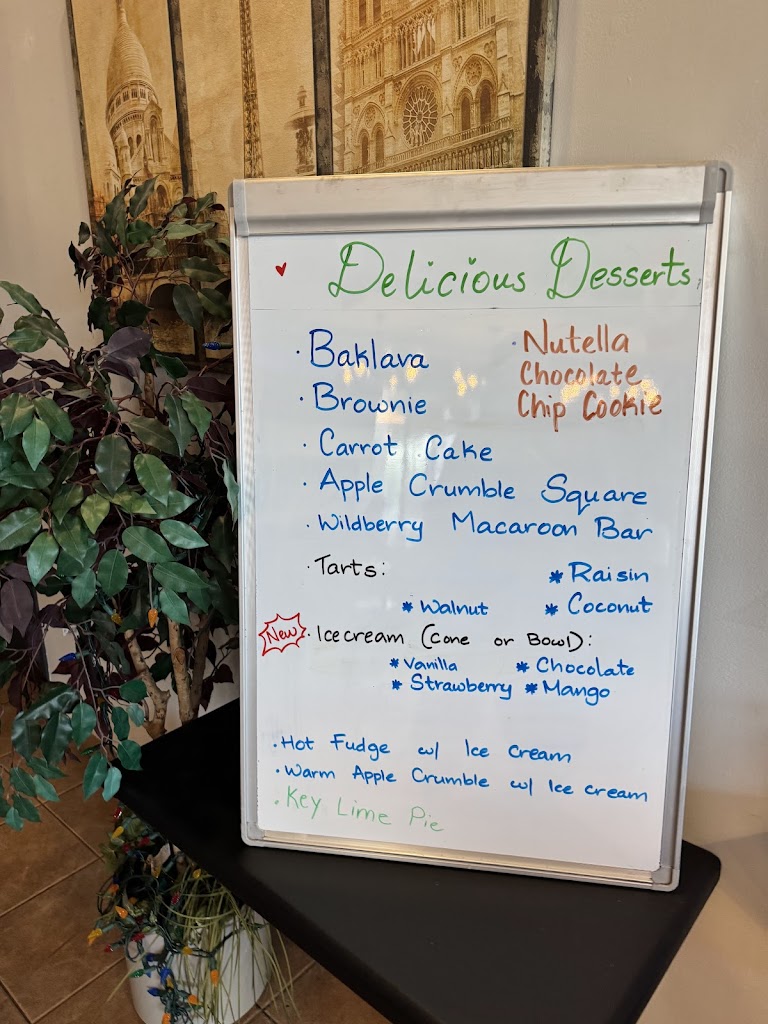 Delicious Desserts
· Baklava
· Brownie
· Nutella
Chocolate
Chip Cookie
· Carrot Cake
· Apple Crumble Square
· Wildberry Macaroon Bar
· Tarts:
* Raisin
* Walnut * Coconut
New · Icecream (Cone or Bowl):
* Vanilla * Chocolate
* Strawberry * Mango
· Hot Fudge w/ Ice Cream
· Warm Apple Crumble w/ Ice cream
· Key Lime Pie